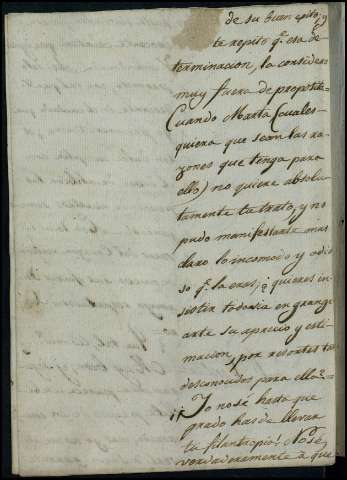 de su buen exito, y
te repito q.e esa de-
terminacion, la considero
muy fuera de proposito=
Cuando Marta (cuales-
quiera que sean las ra-
zones que tenga para
ello) no quiere absolu-
tamente tu trato, y no
pudo manifestarse mas
claro lo incomodo y odio
so q.e la eras, ¿quieres in-
sistir todavia en grange-
arte su aprecio y esti-
macion, por resortes
desconocidos para ella?=
Yo no sé hasta que
grado has de llevar
tu filantropia! No sé
verdaderamente à que